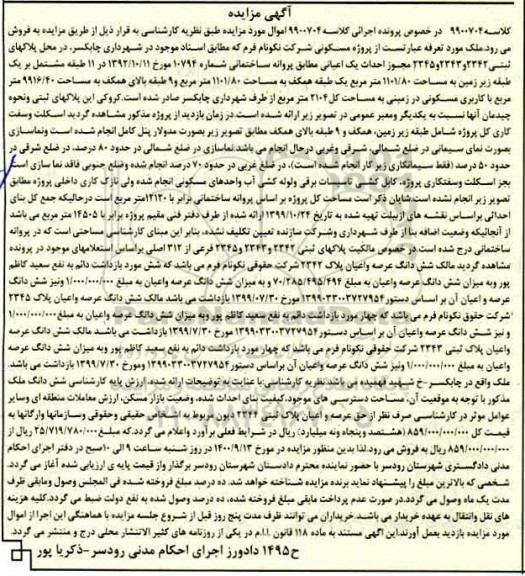 آگهی مزایده
کلاسه ۹۹۰۰۷۰۴ در خصوص پرونده اجرائی کلاسه ۹۹۰۰۷۰۴ اموال مورد مزایده طبق نظریه کارشناسی به قرار ذیل از طریق مزایده به فروش
می رود.ملک مورد تعرفه عبارتست از پروژه مسکونی شرکت نکونام فرم که مطابق اسناد موجود در شهرداری چابکسر، در محل پلاکهای
ثبتی ۲۳۴۲و۲۳۴۳و۲۳۴۵ مجوز احداث یک اعیانی مطابق پروانه ساختمانی شماره ۱۰۷۹۴ مورخ ۱۳۹۲/۱۰/۱۱ در ۱۱ طبقه مشتمل بر یک
طبقه زیر زمین به مساحت ۱۱۰۱/۸۰ متر مربع یک طبقه همکف به مساحت ۱۱۰۱/۸۰ متر مربع و۹ طبقه بالای همکف به مساحت ۹۹۱۶/۴۰ متر
مربع با کاربری مسکونی در زمینی به مساحت کل۲۱۰۴ متر مربع از طرف شهرداری چابکسر صادر شده است.کروکی این پلاکهای ثبتی ونحوه
چیدمان آنها نسبت به یکدیگر ومعبر عمومی در تصویر زیر ارائه شده است.در زمان بازدید از پروژه مذکور مشاهده گردید اسکلت وسفت
کاری کل پروژه شامل طبقه زیر زمین، همکف و ۹ طبقه بالای همکف مطابق تصویر زیر بصورت مدولار پنل کامل انجام شده است ونماسازی
بصورت نمای سیمانی در ضلع شمالی، شرقی وغربی درحال انجام می باشد:نماسازی در ضلع شمالی در حدود ۸۰ درصد، در ضلع شرقی در
حدود ۵۰ درصد (فقط سیمانکاری زیر کار انجام شده است)، در ضلع غربی در حدود ۷۰ درصد انجام شده وضلع جنوبی فاقد نما سازی است
بجز اسکلت وسفتکاری پروژه، کابل کشی تاسیسات برقی ولوله کشی آب واحدهای مسکونی انجام شده ولی نازک کاری داخلی پروژه مطابق
تصویر زیر انجام نشده است.شایان ذکر است مساحت کل پروژه بر اساس پروانه ساختمانی برابر با ۱۲۱۲۰متر مربع است درحالیکه جمع کل بنای
احداثی براساس نقشه های ازبیلت تهیه شده به تاریخ ۱۳۹۹/۱۰/۲۴ ارائه شده از طرف دفتر فنی مقیم پروژه برابر با ۱۴۵۰۵ متر مربع می باشد
از آنجائیکه وضعیت اضافه بنا از طرف شهرداری وشرکت سازنده تعیین تکلیف نشده، بنابر این مبنای کارشناسی مساحتی است که در پروانه
ساختمانی درج شده است.در خصوص مالکیت پلاکهای ثبتی ۲۳۴۲ و۲۳۴۳ و۲۳۴۵ فرعی از ۳۱۲ اصلی براساس استعلامهای موجود در پرونده
مشاهده گردید مالک شش دانگ عرصه واعیان پلاک ۲۳۴۲ شرکت حقوقی نکونام فرم می باشد که شش مورد بازداشت دائم به نفع سعید کاظم
پور وبه میزان شش دانگ عرصه واعیان به مبلغ ۷۰/۲۸۵/۴۹۵/۴۹۴ و به میزان شش دانگ عرصه واعیان به مبلغ ۱/۰۰۰/۰۰۰/۰۰۰ ونیز شش دانگ
عرصه و اعیان آن بر اساس دستور۱۳۹۹۰۳۳۰۰۳۷۲۷۹۵۴ مورخ ۱۳۹۹/۰۷/۳۰ بازداشت می باشد مالک شش دانگ عرصه واعیان پلاک ۲۳۴۵
شرکت حقوق نکونام فرم می باشد که چهار مورد بازداشت دائم به نفع سعید کاظم پور وبه میزان شش دانگ عرصه واعیان به مبلغ ۱/۰۰۰/۰۰۰/۰۰۰
و نیز شش دانگ عرصه واعیان آن بر اساس دستور۱۳۹۹۰۳۳۰۰۳۷۲۷۹۵۴ مورخ ۱۳۹۹/۷/۳۰ بازداشت می باشند مالک شش دانگ عرصه
واعیان پلاک ثبتی ۲۳۴۳ شرکت حقوقی نکونام فرم می باشد که چهار مورد بازداشت دائم به نفع سعید کاظم پور وبه میزان شش دانگ عرصه
واعیان به مبلغ ۱/۰۰۰/۰۰۰/۰۰۰ ونیز شش دانگ عرصه واعیان آن براساس دستور۱۳۹۹۰۳۳۰۰۳۷۲۷۹۵۴ ومورخ ۱۳۹۹/۷/۳۰ بازداشت می باشد.
ملک واقع در چابکسر-خ شهید فهمیده می باشد نظریه کارشناسی:با عنایت به توضیحات ارائه شده، ارزش پایه کارشناسی شش دانگ ملک
مذکور با توجه به موقعیت آن، مساحت دسترسی های موجود،کیفیت بنای احداث شده، وضعیت بازار مسکن، ارزش معاملات منطقه ای وسایر
عوامل موثر در کارشناسی صرف نظر از حق عرصه و اعیان پلاک ثبتی ۲۳۴۴ دین مربوط به اشخاص حقیقی وحقوقی وسازمانها وارگانها به
قیمت کل ۸۵۹/۰۰۰/۰۰۰/۰۰۰ (هشتصد و پنجاه ونه میلیارد) ریال در شرایط فعلی برآورد واعلام می گردد.که مبلغ۲۵/۷۱۹/۷۸۰/۰۰۰ ریال از
۸۵۹/۰۰۰/۰۰۰/۰۰۰ ریال به فروش می رود.لذا بدین منظور مزایده در مورخ ۱۴۰۰/۹/۱۳ در روز شنبه ساعت ۹ الی ۱۰صبح در دفتر اجرای احکام
مدنی دادگستری شهرستان رودسر با حضور نماینده محترم دادستان شهرستان رودسر برگذار واز قیمت پایه ی ارزیابی شده آغاز می گردد.
شخصی که بالاترین مبلغ را پیشنهاد نماید برنده مزایده شناخته خواهد شد. ده درصد مبلغ فروخته شده فی المجلس وصول ومابقی ظرف
مدت یک ماه وصول می گردد.در صورت عدم پرداخت مابقی مبلغ فروخته شده، ده درصد وصول شده به نفع دولت ضبط می گردد.کلیه هزینه
های نقل وانتقال به عهده خریدار می باشد.خریداران می توانند ظرف مدت پنج روز قبل از شروع جلسه مزایده با هماهنگی این اجرا از اموال
مورد مزایده بازدید بعمل آورند.این آگهی مستند به ماده ۱۱۸ قانون ا.ا.م در یکی از روزنامه های کثیر الانتشار محلی درج و منتشر می گردد.
ح۱۴۹۵ دادورز اجرای احکام مدنی رودسر-ذکریا پور